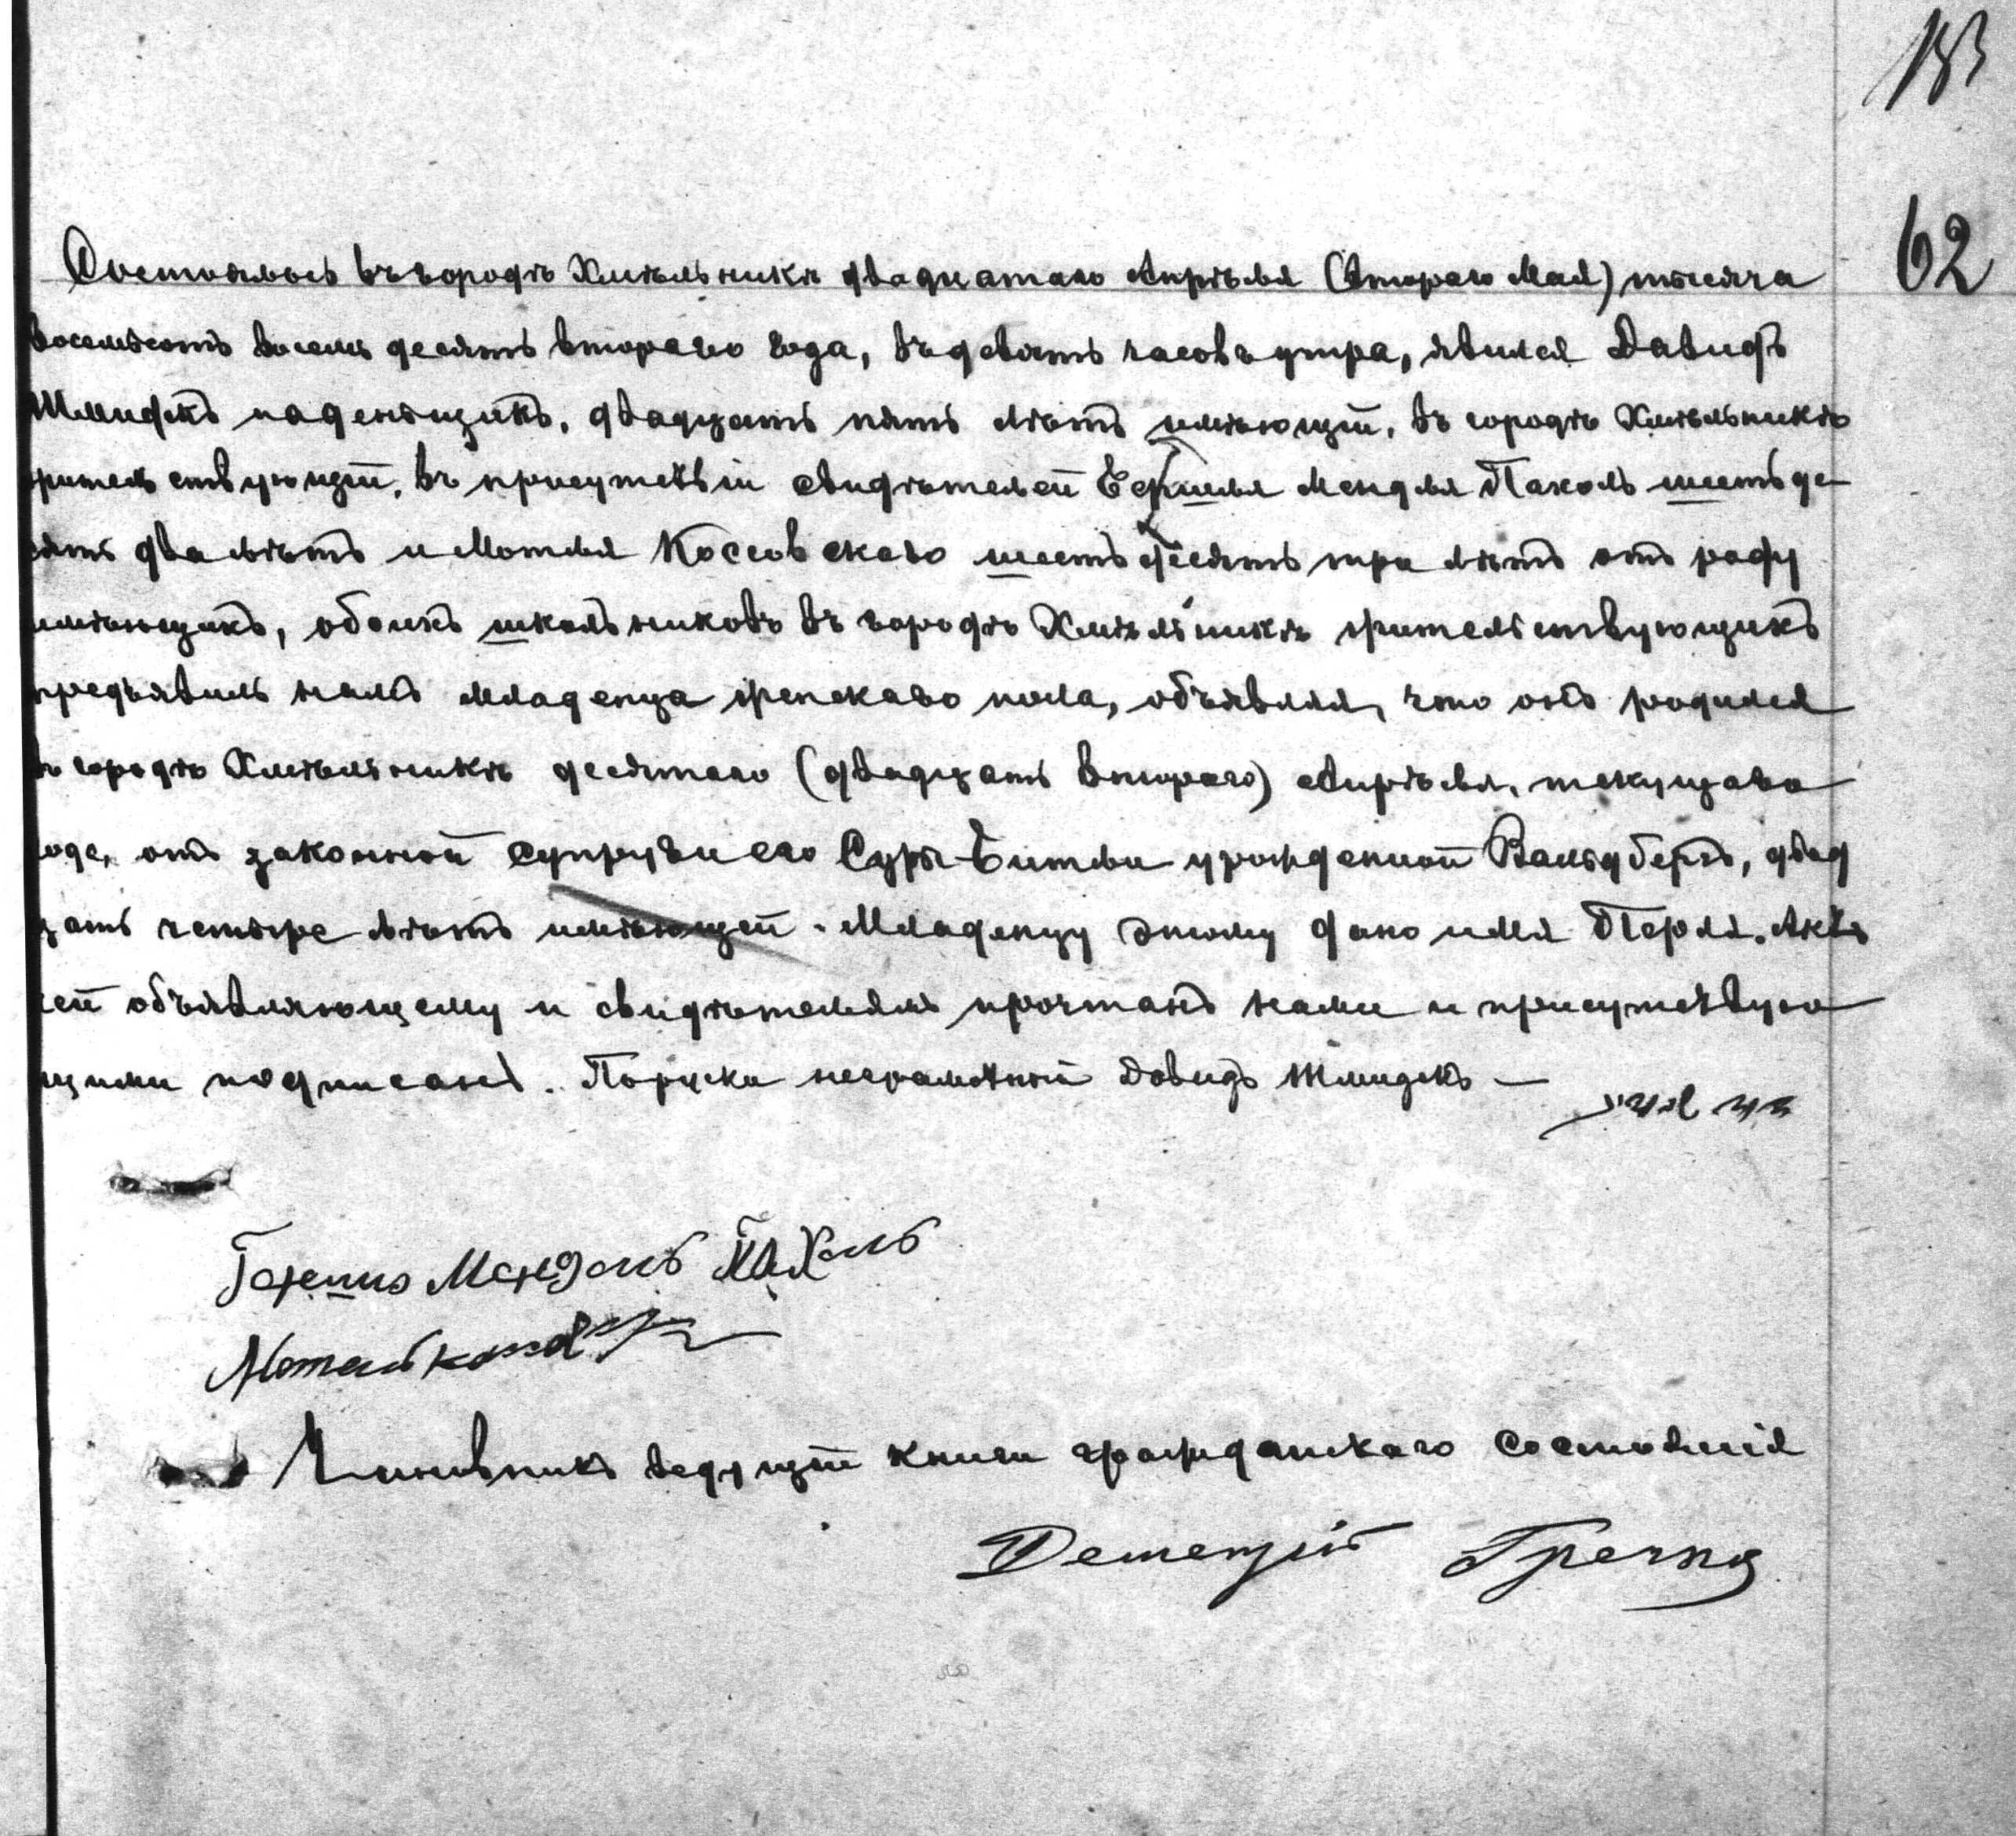 183
62
Состоялось въ городѣ Хмѣльникѣ двадцатаго Апрѣля (втораго Мая) тысяча
восемьсотъ восемь десятъ втораго года, въ девять часовъ утра, явился Давидъ
Шмидекъ паденщикъ, двадцать пять лѣтъ имѣющій, въ городѣ Хмѣльникѣ
жительствующій, въ присутствіи свидѣтелей Ершля Мендля Пахоль шестьде-
сятъ два лѣтъ и Мотля Коссовскаго шестьдесятъ три лѣтъ отъ роду
имѣющихъ, обоихъ школьниковъ въ городѣ Хмѣльникѣ жительствующихъ
предъявилъ намъ младенца женскаго пола, объявляя, что онъ родился
въ городѣ Хмѣльникѣ десятаго (двадцать втораго) Апрѣля, текущаго
года, отъ законной супруги его Суры Битли урожденной Вальдбергъ, двад
цать четыре лѣтъ имѣющей. Младенцу этому дано имя Перля. Актъ
сей объявляющему и свидѣтелямъ прочтанъ нами и присутствую
щими подписанъ. Поруски неграмотный Довидъ Шмидекъ —
Гершко Мендель Пахоль
Мотель
Чиновникъ ведущій книги гражданскаго состоянія